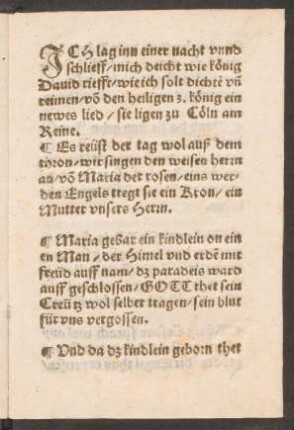 ICH lag inn einer nacht vnnd
schlieff/mich deicht wie könig
Dauid rieff/wie ich solt dichtẽ vñ
reimen/võ den heiligen 3. könig ein
newes lied/ sie ligen zu Cöln am
Reine.
¶ Es reüst der tag wol auß dem
thron/wir singen den weisen herrn
an/võ Maria der rosen/eins wer-
den Engels tregt sie ein Kron/ein
Mutter vnsers Herrn.
¶ Maria gebar ein kindlein on ein
en Man/ der Himel vnd erdẽ mit
freüd auff nam/dz paradeis ward
auff geschlossen/GOTT thet sein
Creütz wol selber tragen/sein blut
für vns vergossen.
¶ Vnd da dz kindlein geborn thet